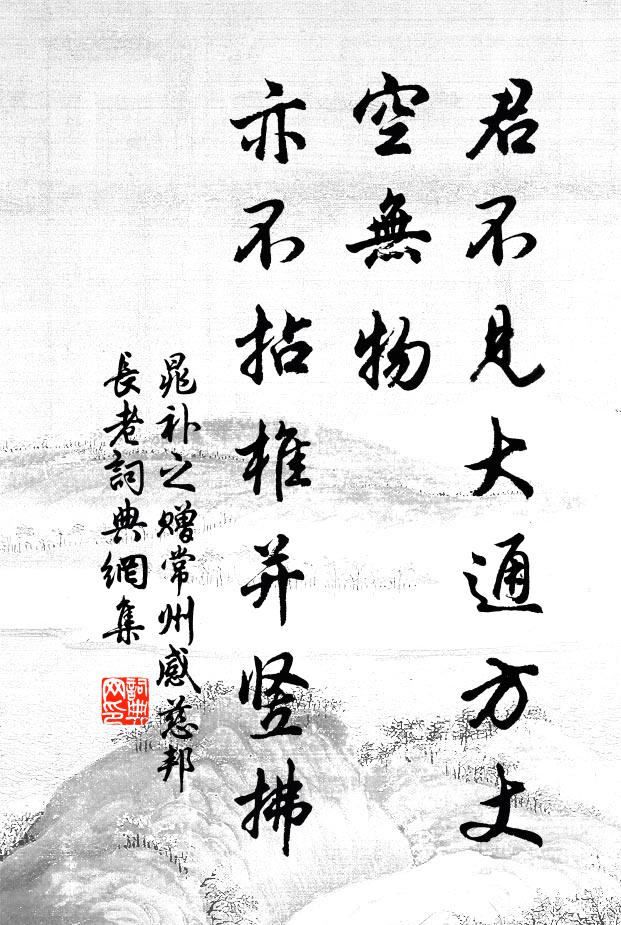 君不見大通方丈
空無物
亦不拈椎并竖拂
晁补之赠常州感慈邦
長老詞典網集
詞典网印